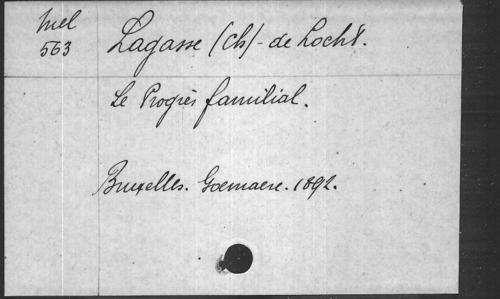 Mel
563
Lagasse (Ch) - de Locht.
Le Progrès familial.
Bruxelles. Goemaere. 1892.